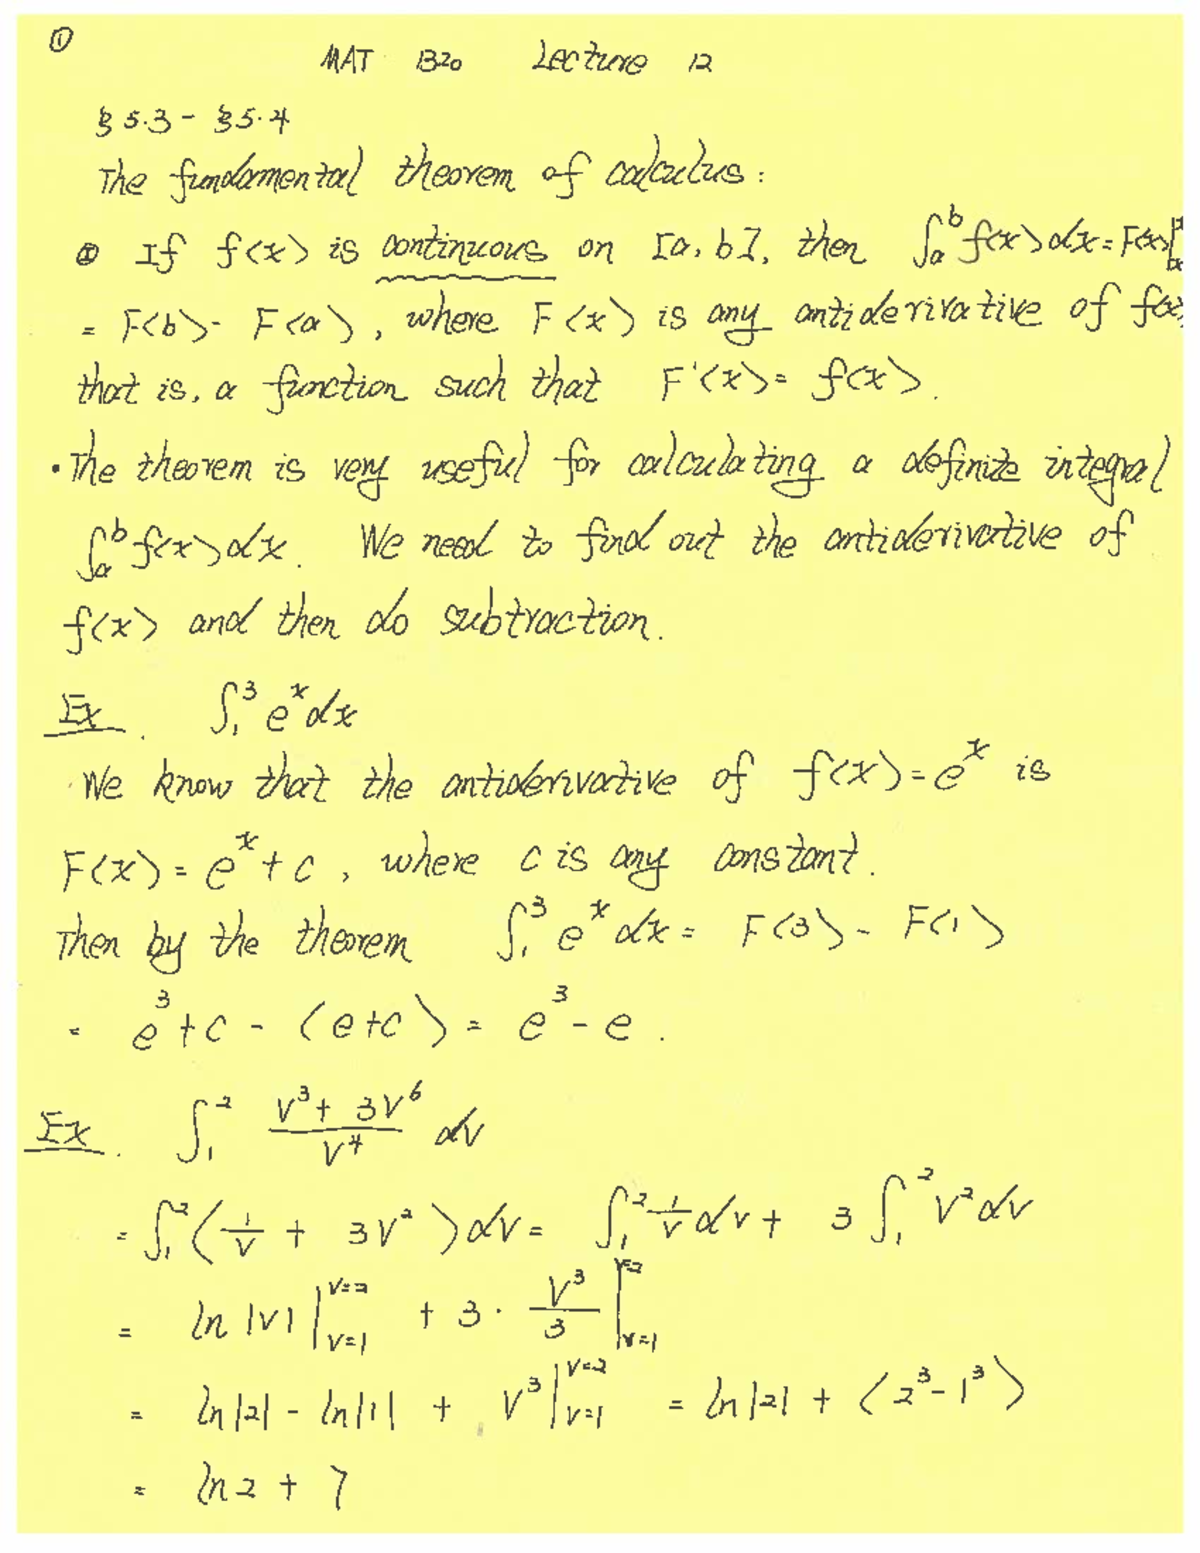 ①
MAT 1320 Lecture 12
§5.3 - §5.4
The fundamental theorem of calculus:
If f(x) is continuous on [a, b], then ∫_a^b f(x)dx = F(x)|
= F(b) - F(a), where F(x) is any antiderivative of f(x)
that is, a function such that F'(x) = f(x).
• The theorem is very useful for calculating a definite integral
∫_a^b f(x)dx. We need to find out the antiderivative of
f(x) and then do subtraction.
Ex. ∫_1^3 e^x dx
We know that the antiderivative of f(x) = e^x is
F(x) = e^x + c, where c is any constant.
Then by the theorem ∫_1^3 e^x dx = F(3) - F(1)
= e^3 + c - (e + c) = e^3 - e.
Ex. ∫_1^2 (v^3 + 3v^6)/v^4 dv
= ∫_1^2 (1/v + 3v^2) dv = ∫_1^2 1/v dv + 3 ∫_1^2 v^2 dv
= ln |v| |_{v=1}^{v=2} + 3 · v^3/3 |_{v=1}^{v=2}
= ln|2| - ln|1| + v^3 |_{v=1}^{v=2} = ln|2| + (2^3 - 1^3)
= ln 2 + 7